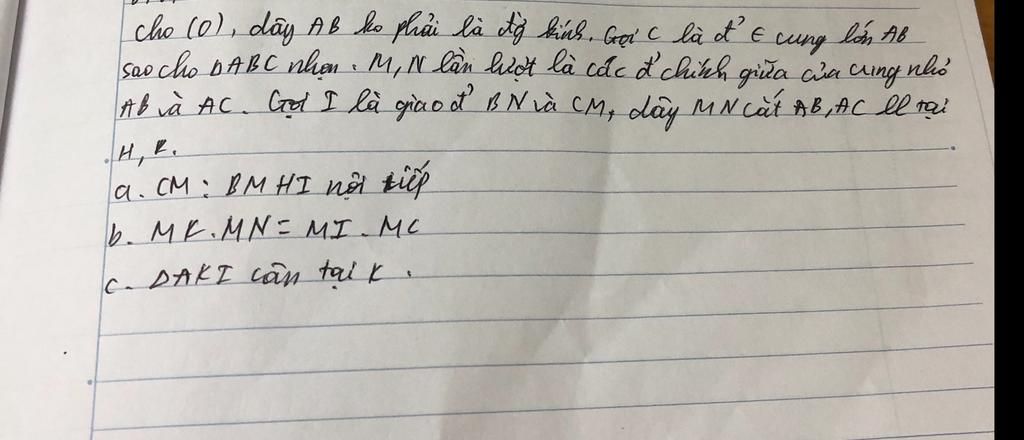 cho (O), dây AB ko phải là đg kính. Gọi C là đ' ∈ cung lớn AB
sao cho ΔABC nhọn. M, N lần lượt là các đ' chính giữa của cung nhỏ
AB và AC. Gọi I là giao đ' BN và CM, dây MN cắt AB, AC ll tại
H, K.
a. CM: BMHI nội tiếp
b. MK.MN = MI.MC
c. ΔAKI cân tại K.